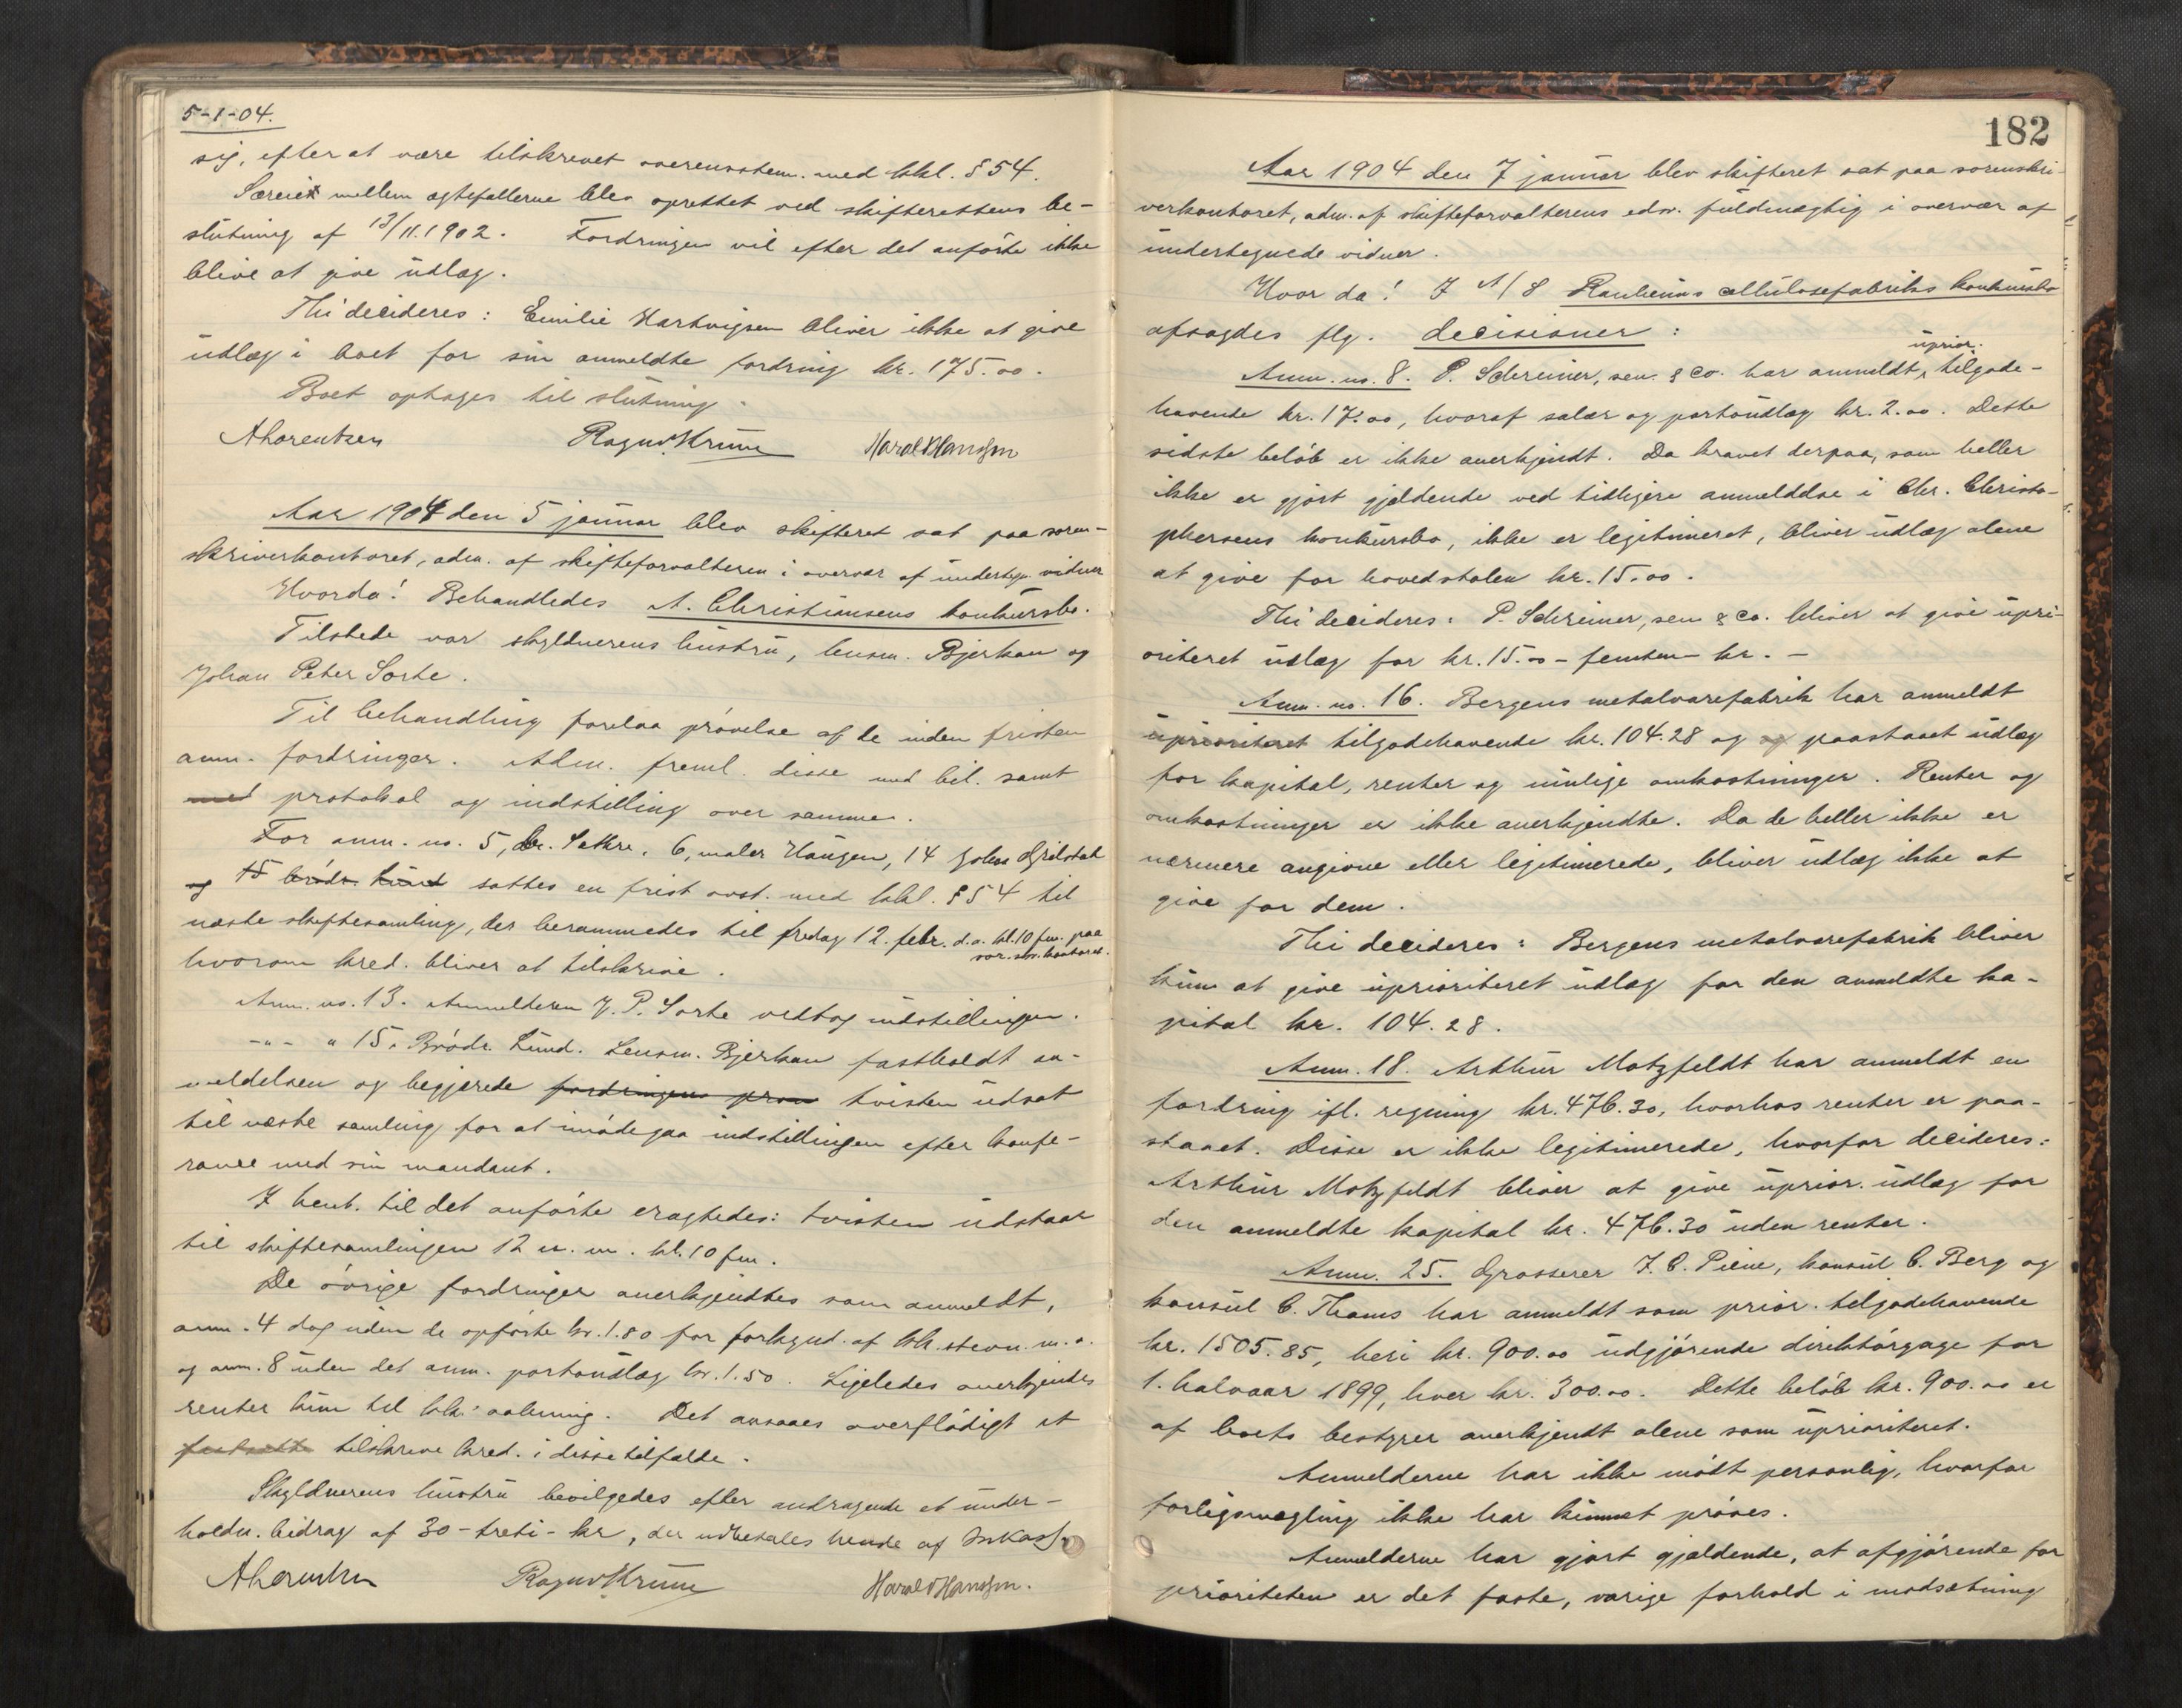 5-1-04.
sig, efter at være tilskrevet overensstem. med kkl. § 54.
Særeiet mellem ægtefællerne blev oprettet ved skifterettens be-
slutning af 13/11.1902. Fordringen vil efter det anførte ikke
blive at give udlæg.
Thi decideres: Emilie Hartvigsen bliver ikke at give
udlæg i boet for sin anmeldte fordring kr. 175.00.
Boet optages til slutning.
A Lorentzen Ragnv. Krüne Harald Hansen
Aar 1904 den 5 januar blev skifteret sat paa soren-
skriverkontoret, adm. af skifteforvalteren i overvær af undertegn. vidner
Hvorda! Behandledes A. Christiansens konkursbo.
Tilstede var skyldnerens hustru, lensm. Bjerkan og
Johan Peter Sorte.
Til behandling forelaa prøvelse af de inden fristen
anm. fordringer. Adm. freml. disse med bil. samt
med protokol og indstilling over samme.
For anm. no. 5, dr. Sæthre, 6, maler Haugen, 14 John Gjilstad
og 15 brødr. Lund sattes en frist ovst. med kkl. § 54 til
næste skiftesamling, der berammedes til fredag 12. febr. d.a. kl. 10 fm. paa
sor.skr. kontoret.
hvorom kred. bliver at tilskrive.
Anm. no. 13. Anmelderen J. P. Sorte vedtog indstillingen.
-"- " 15. Brødr. Lund. Lensm. Bjerkan fastholdt an-
meldelsen og begjærede fordringens prøv tvisten udsat
til næste samling for at imødegaa indstillingen efter konfe-
rance med sin mandant.
I henh. til det anførte eragtedes: tvisten udstaar
til skiftesamlingen 12 n. m. kl. 10 fm.
De øvrige fordringer anerkjendtes som anmeldt,
anm. 4 dog uden de opførte kr. 1.80 for forkynd. af kk. stevn. m. a.
og anm. 8 uden det anm. portoudlæg kr. 1.50. Ligeledes anerkjendes
renter kun til kk. aabning. Det ansaaes overflødigt at
fastsætte tilskrive kred. i disse tilfælde.
Skyldnerens hustru bevilgedes efter andragende et under-
holdn. bidrag af 30 - treti - kr, der udbetales hende af Inkasso
A Lorentzen Ragnv Krüne Harald Hansen.
182
Aar 1904 den 7 januar blev skifteret sat paa sorenskri-
verkontoret, adm. af skifteforvalterens edsv. fuldmægtig i overvær af
undertegnede vidner.
Hvor da! I A/S Ranheims cellulosefabriks konkursbo
afsagdes flg. decisioner:
uprior.
Anm. no. 8. P. Schreiner, sen. & co. har anmeldt tilgode-
havende kr. 17.00, hvoraf salær og portoudlæg kr. 2.00. Dette
sidste beløb er ikke anerkjendt. Da kravet derpaa, som heller
ikke er gjort gjældende ved tidligere anmeldelse i Chr. Christo-
phersens konkursbo, ikke er legitimeret, bliver udlæg alene
at give for hovedstolen kr. 15.00.
Thi decideres: P. Schreiner, sen & co. bliver at give upri-
oriteret udlæg for kr. 15.00 - femten - kr. -
Anm. no. 16. Bergens metalvarefabrik har anmeldt
uprioriteret tilgodehavende kr. 104.28 og og paastaaet udlæg
for kapital, renter og mulige omkostninger. Renter og
omkostninger er ikke anerkjendte. Da de heller ikke er
nærmere angivne eller legitimerede, bliver udlæg ikke at
give for dem.
Thi decideres: Bergens metalvarefabrik bliver
kun at give uprioriteret udlæg for den anmeldte ka-
pital kr. 104.28.
Anm. 18. Arthur Motzfeldt har anmeldt en
fordring ifl. regning kr. 476.30, hvorhos renter er paa-
staaet. Disse er ikke legitimerede, hvorfor decideres:
Arthur Motzfeldt bliver at give uprior. udlæg for
den anmeldte kapital kr. 476.30 uden renter.
Anm. 25. Grosserer I. C. Piene, konsul C. Berg og
konsul C. Thams har anmeldt som prior. tilgodehavende
kr. 1505.85, heri kr. 900.00 udgjørende direktørgage for
1. halvaar 1899, hver kr. 300.00. Dette beløb kr. 900.00 er
af boets bestyrer anerkjendt alene som uprioriteret.
Anmelderne har ikke mødt personlig, hvorfor
forligsmægling ikke har kunnet prøves.
Anmelderne har gjort gjældende, at afgjørende for
prioriteten er det faste, varige forhold i modsætning